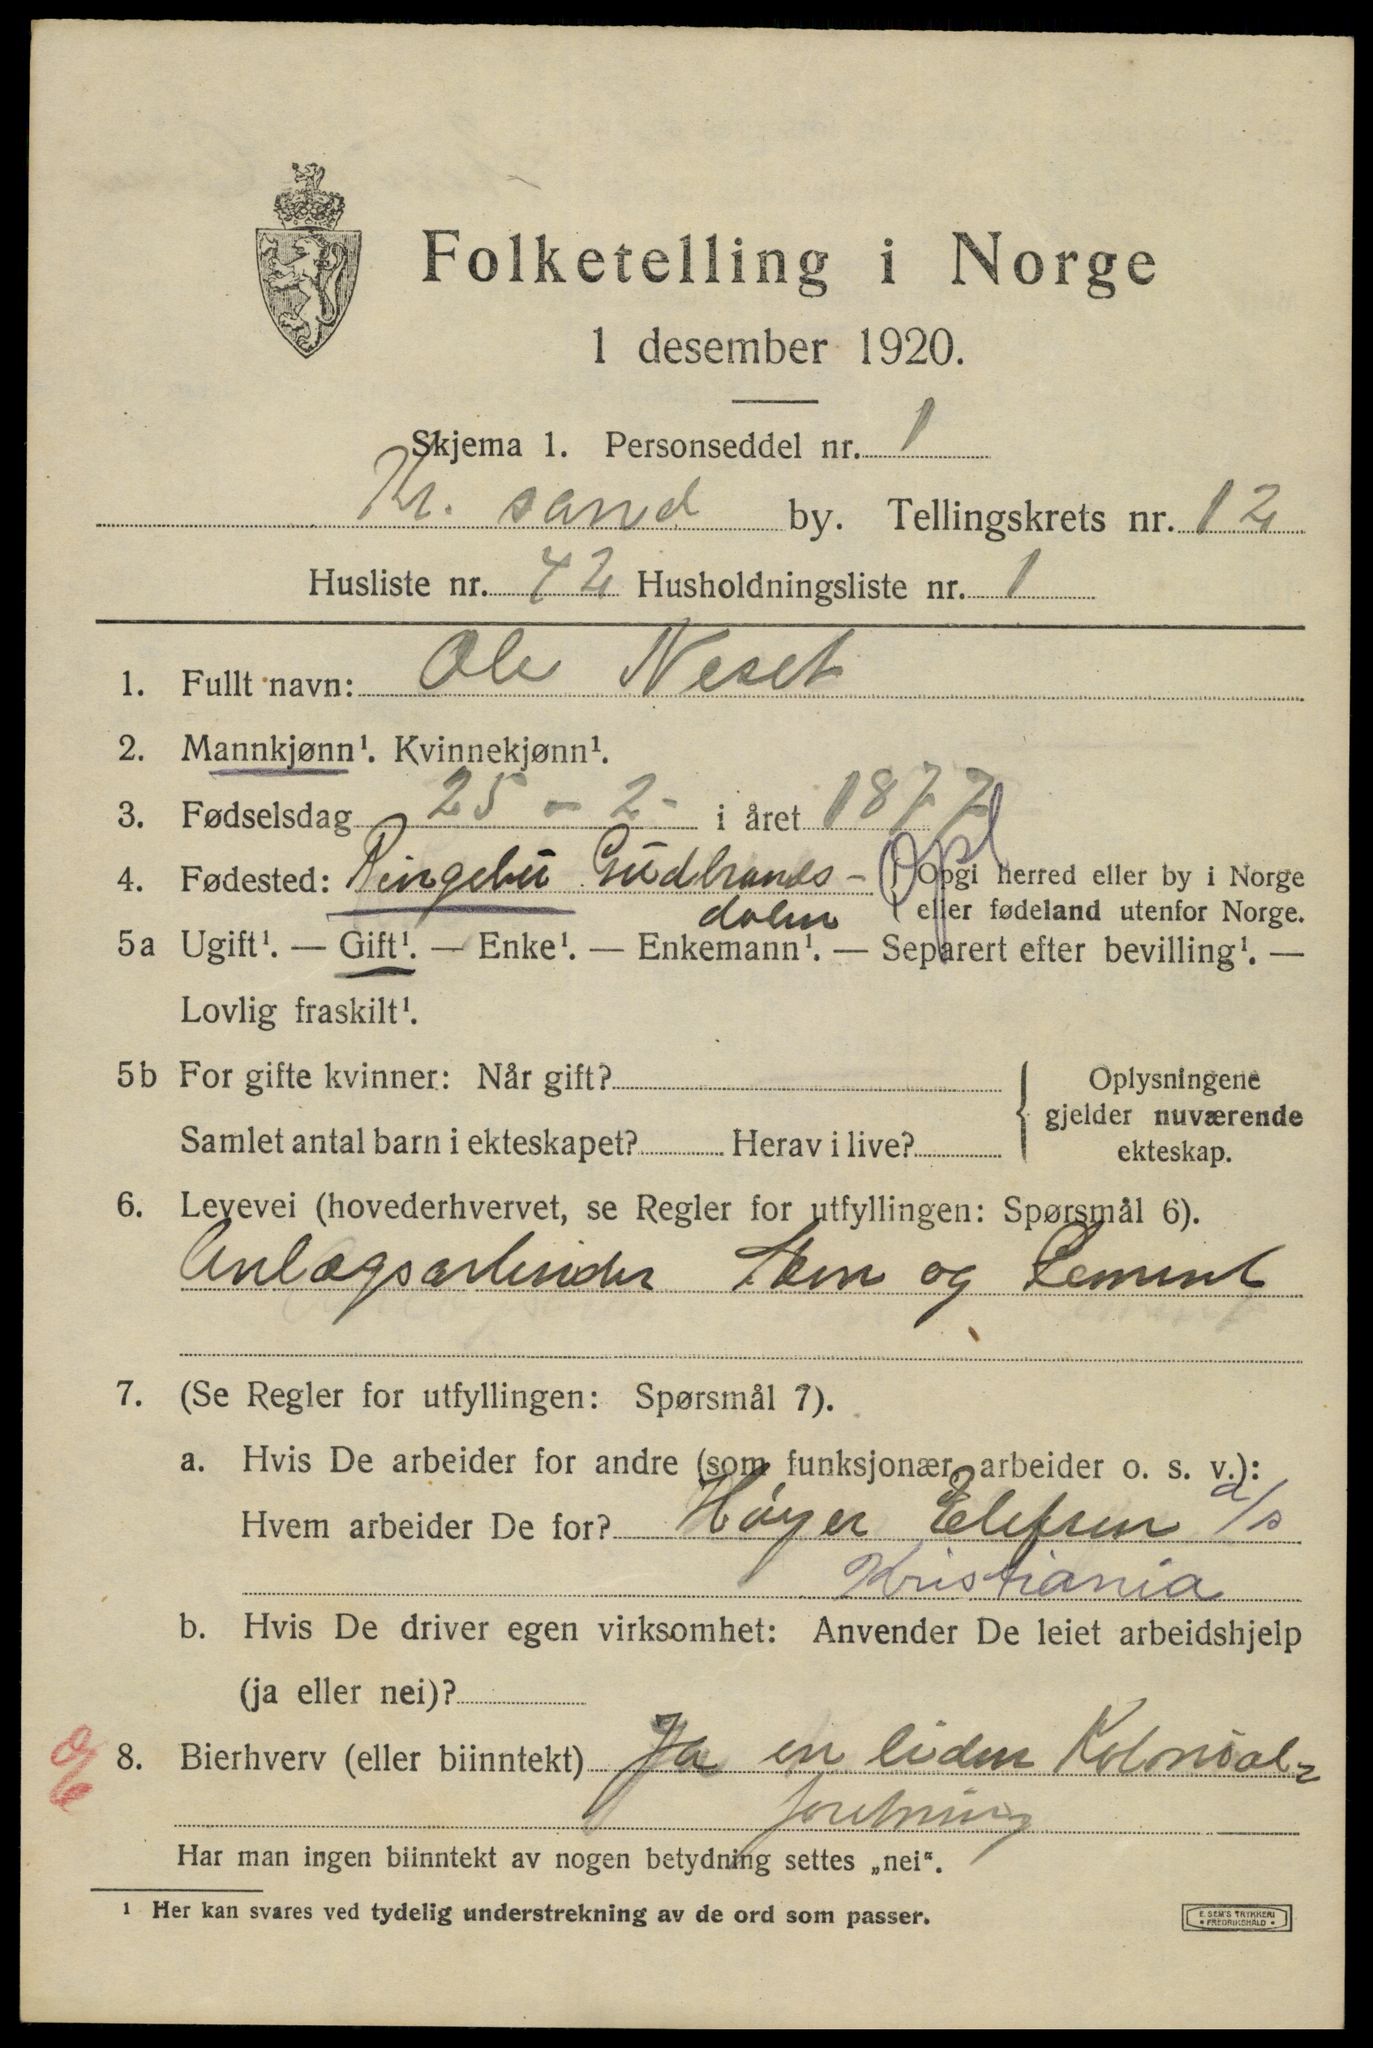 Folketelling i Norge
1 desember 1920.
Skjema 1. Personseddel nr. 1
Kr. sand by. Tellingskrets nr. 12
Husliste nr. 42 Husholdningsliste nr. 1
1. Fullt navn: Ole Neset
2. Mannkjønn¹. Kvinnekjønn¹.
3. Fødselsdag 25 - 2 - i året 1877
4. Fødested: Ringebu Gudbrands- Opl { Opgi herred eller by i Norge
dalen eller fødeland utenfor Norge.
5a Ugift¹. — Gift¹. — Enke¹. — Enkemann¹. — Separert efter bevilling¹. —
Lovlig fraskilt¹.
5b For gifte kvinner: Når gift? Oplysningene
gjelder nuværende
Samlet antal barn i ekteskapet? Herav i live? ekteskap.
6. Levevei (hovederhvervet, se Regler for utfyllingen: Spørsmål 6).
Anlægsarbeider Sten og Cement
7. (Se Regler for utfyllingen: Spørsmål 7).
a. Hvis De arbeider for andre (som funksjonær, arbeider o. s. v.):
Hvem arbeider De for? Høyer Elefsen a/s
Kristiania
b. Hvis De driver egen virksomhet: Anvender De leiet arbeidshjelp
(ja eller nei)?
8. Bierhverv (eller biinntekt) Ja en liden Kolonial=
foretning
Har man ingen biinntekt av nogen betydning settes „nei“.
¹ Her kan svares ved tydelig understrekning av de ord som passer.
E. SEM'S TRYKKERI
• FREDRIKSHALD •